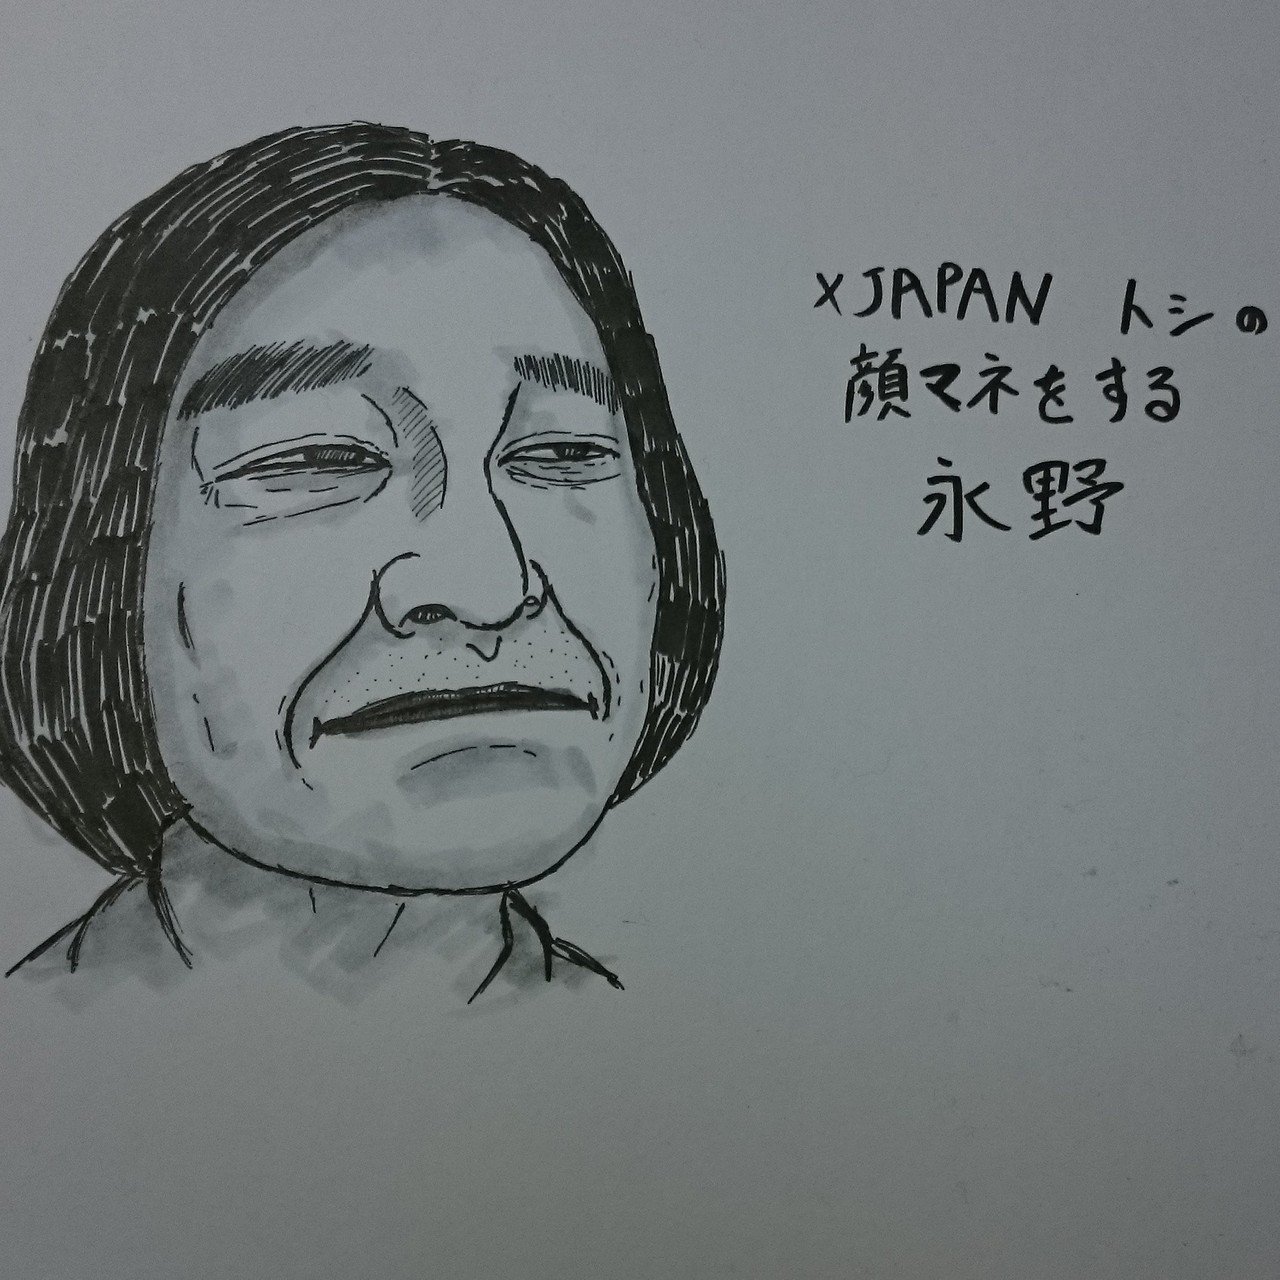 XJAPAN トシの
顔マネをする
永野